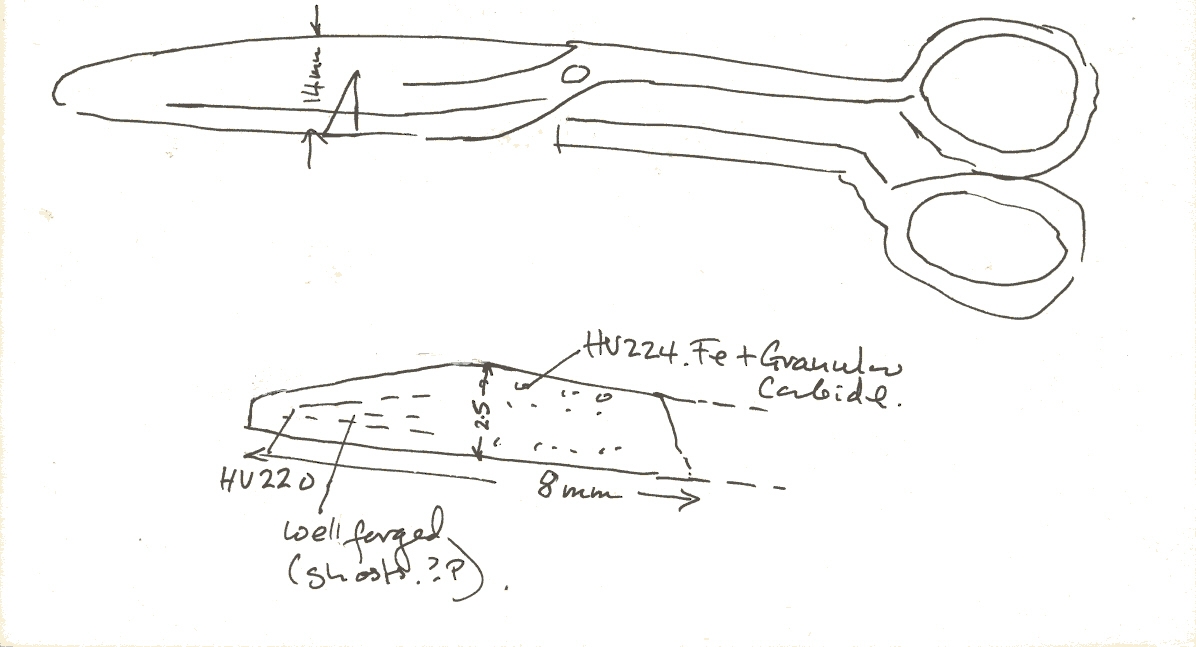 14mm
HV224. Fe + Granular
Carbide.
2.5
HV220
8mm
well forged
(ghosts.??)